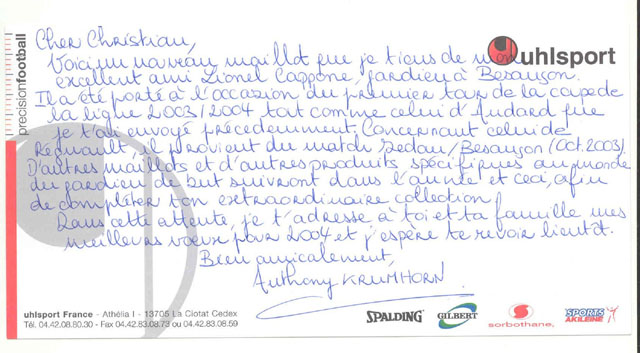 precisionfootball
uhlsport
Cher Christian,
Voici un nouveau maillot que je tiens de mon
excellent ami Lionel Cappone, gardien à Besançon.
Il a été porté à l'occasion du premier tour de la coupe de
la ligue 2003/2004 tout comme celui d'Audard que
je t'ai envoyé précedemment. Concernant celui de
Régnault, il provient du match Sedan/Besançon (Oct. 2003).
D'autres maillots et d'autres produits spécifiques au monde
du gardien de but suivront dans l'année et ceci, afin
de compléter ton extraordinaire collection.
Dans cette attente, je t'adresse à toi et ta famille mes
meilleurs voeux pour 2004 et j'espère te revoir bientôt.
Bien amicalement,
Anthony KRUMHORN.
uhlsport France - Athélia I - 13705 La Ciotat Cedex
Tél. 04.42.08.80.30 - Fax 04.42.83.08.73 ou 04.42.83.08.59
SPALDING
GILBERT
sorbothane.
SPORTS
AKILEINE